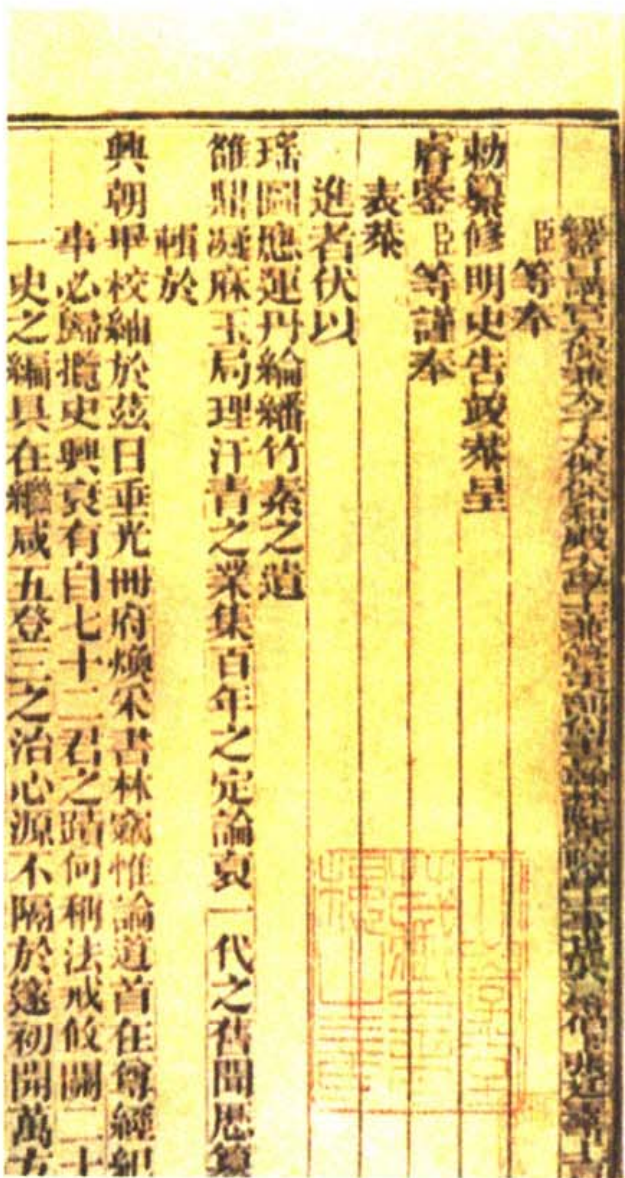 講官太保兼太子太保保和殿大學士兼管吏部尚書翰林院掌院學士事張廷玉等上言
臣等奉
勅纂修明史告竣恭呈
睿鑒臣等謹奉
表恭
進者伏以
瑶圖應運丹綸繙竹素之遺
雒鼎凝庥玉局理汗青之業集百年之定論裒一代之舊聞歷纂
輯於
興朝畢校紬於茲日垂光冊府煥采書林竊惟論道首在尊經紀
事必歸攬史興衰有自七十二君之蹟何稱法戒攸關二十
一史之編具在繼咸五登三之治心源不隔於邃初開萬方